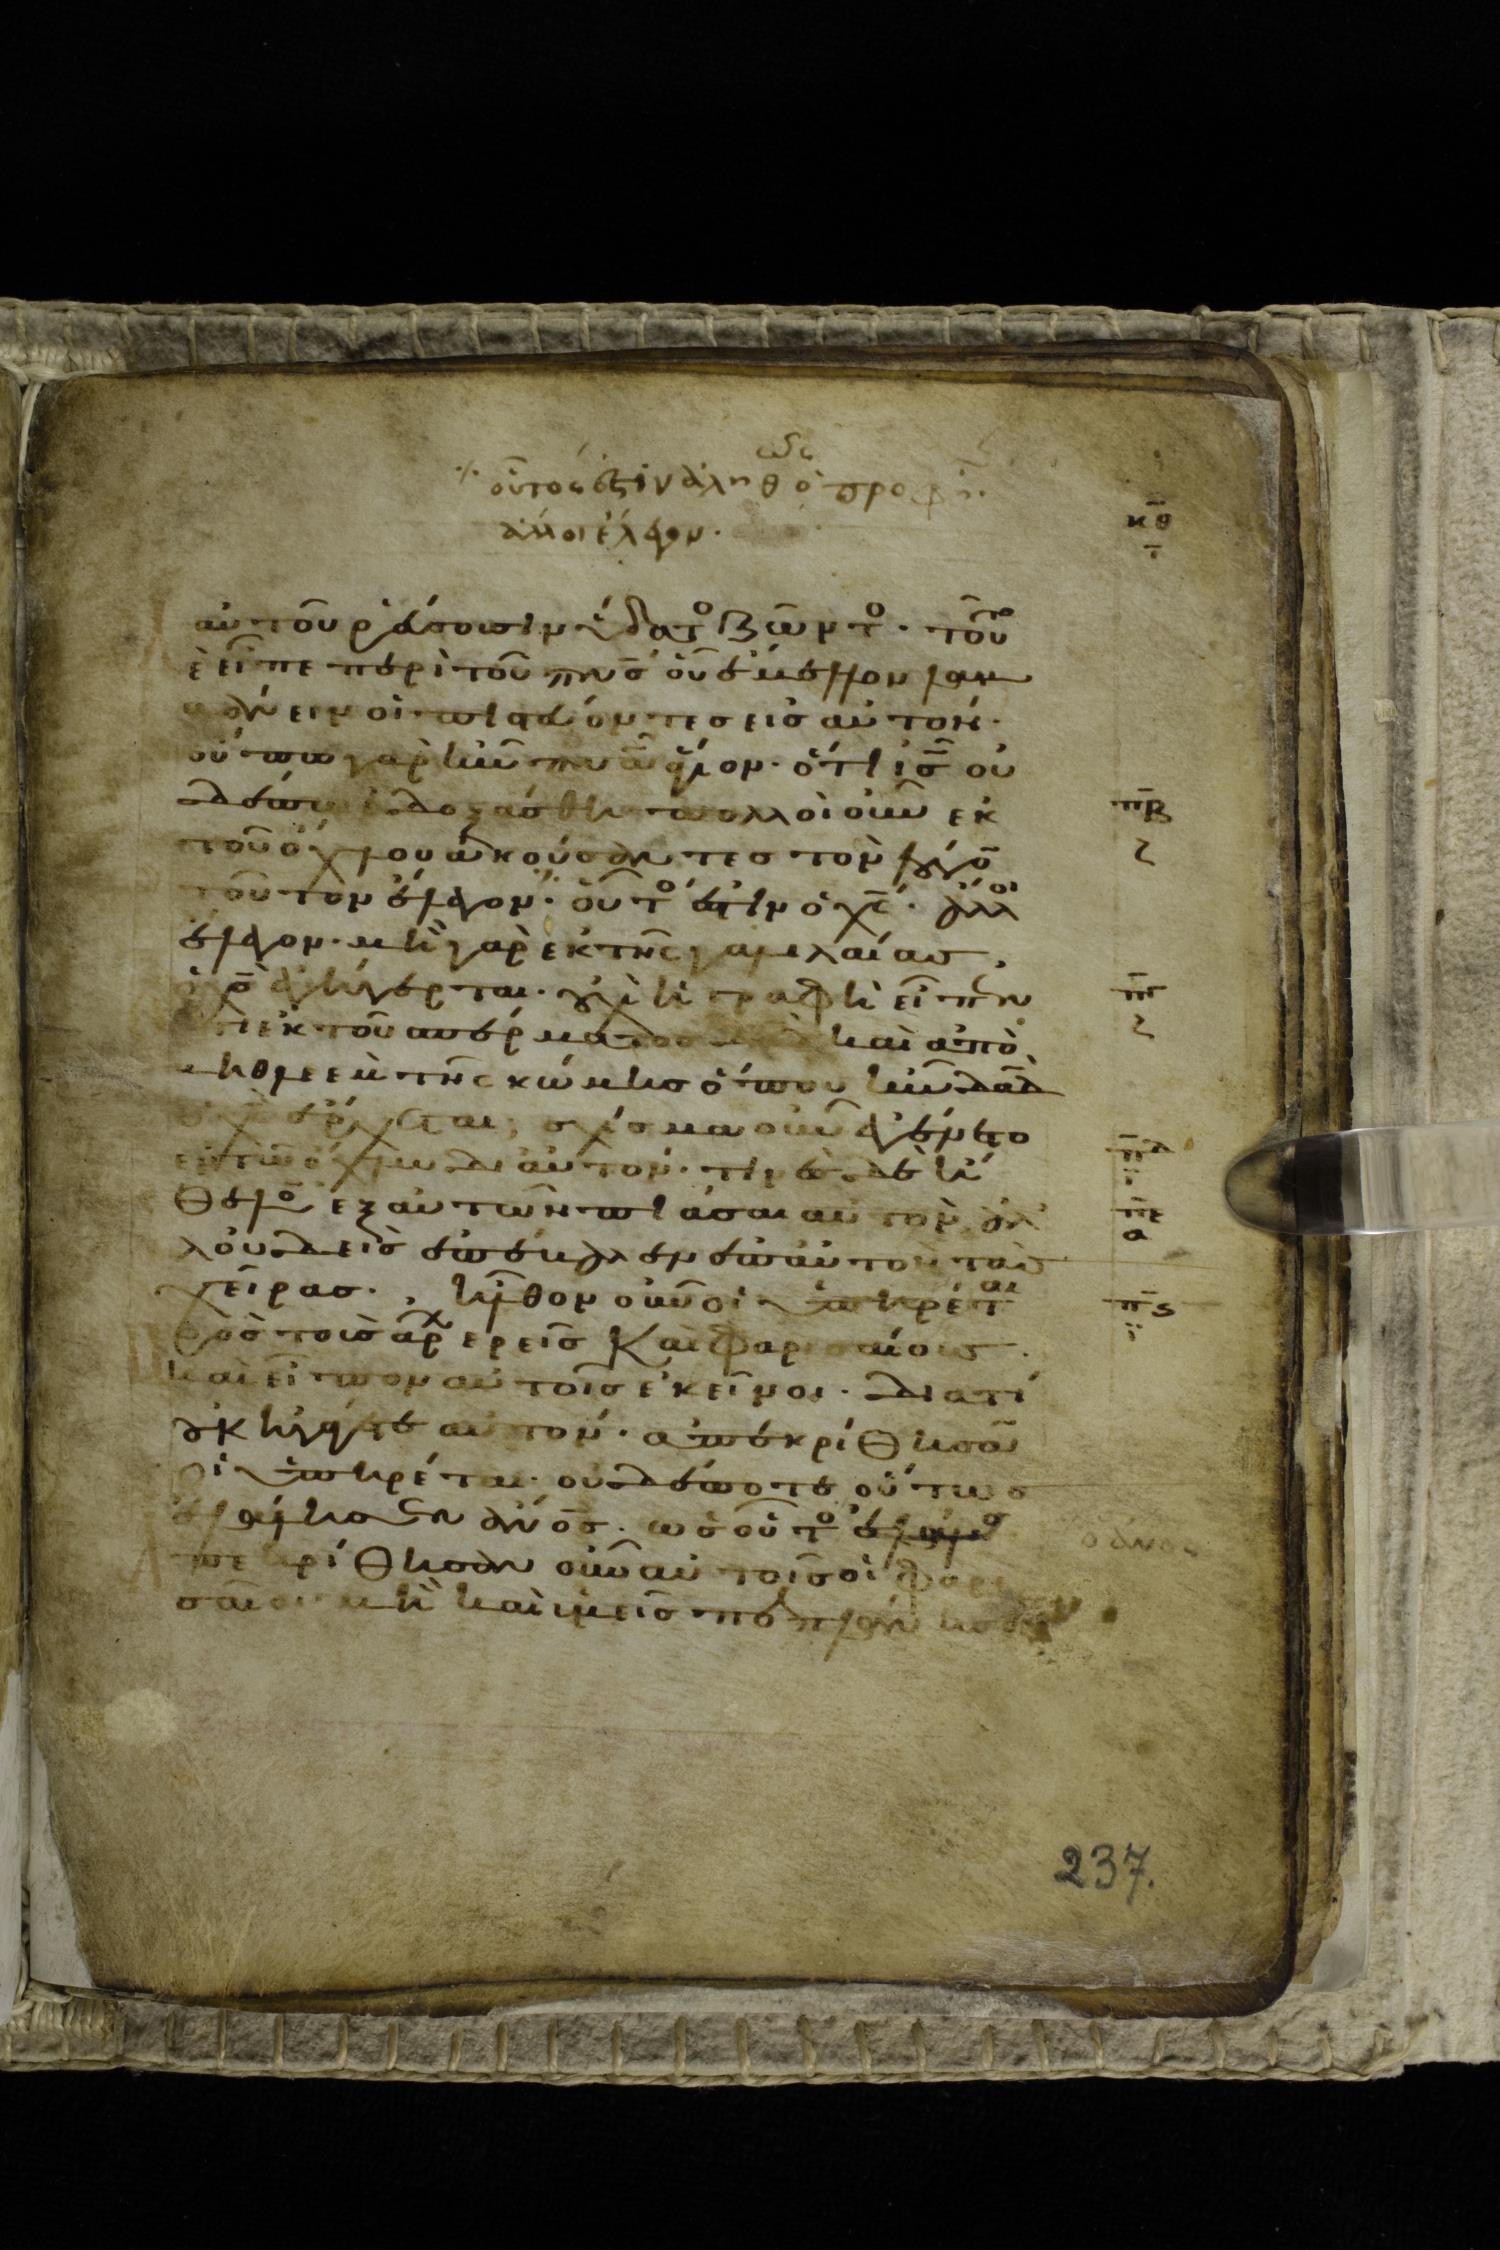 οὗτός ἐστιν ἀληθῶς ὁ προφή
ἄλλοι ἔλεγον·
κθ
αὐτοῦ ῥεύσουσιν ὕδατο ζῶντο· τοῦτο
εἶπε περὶ τοῦ πνς οὗ ἔμελλον λαμ
βάνειν οἱ πιστεύοντες εἰς αὐτόν·
οὔπω γὰρ ἦν πνα ἅγιον· ὅτι ις οὐ
δέπω ἐδοξάσθη πολλοὶ οὖν ἐκ
πβ
τοῦ ὄχλου ἀκούσαντες τὸν λόγο
ζ
τοῦτον ἔλεγον· οὗτο ἐστιν ὁ χς· ἄλλοι
ἔλεγον· μὴ γὰρ ἐκ τῆς γαλιλαίας
ὁ χς ἔρχεται· οὐχὶ ἡ γραφὴ εἶπεν
πγ
ὅτι ἐκ τοῦ σπέρματος καὶ ἀπὸ
ζ
βηθλεὲμ τῆς κώμης ὅπου ἦν δαδ
ὁ χς ἔρχεται; σχίσμα οὖν ἐγένετο
πδ
ἐν τῷ ὄχλῳ δι αὐτόν· τινὲς δὲ ἤ
ϊ
θελο ἐξ αὐτῶν πιάσαι αὐτὸν ἀλ
πε
λ οὐδεὶς ἐπέβαλεν ἐπ αὐτὸν τὰς
α
χεῖρας· ἦλθον οὖν οἱ ὑπηρέται
πς
πρὸς τοὺς ἀρχερεῖς καὶ φαρισαίους·
ϊ
καὶ εἶπον αὐτοῖς ἐκεῖνοι· διατί
οὐκ ἠγάγετε αὐτόν· ἀπεκρίθησαν
οἱ ὑπηρέται· οὐδέποτε οὕτως
ἐλάλησεν ανος· ὡς οὗτο
ὁ ανος
ἀπεκρίθησαν οὖν αὐτοῖς οἱ φαρι
σαῖοι· μὴ καὶ ὑμεῖς πεπλάνησθε
237.